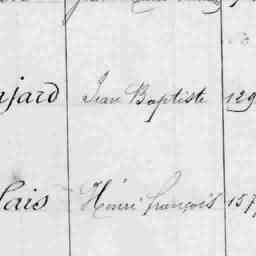 jard Jean Baptiste 129
lais Henri françois 157